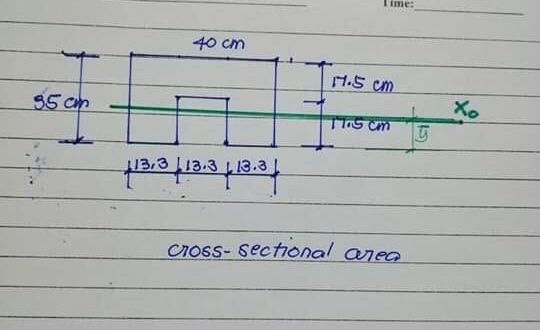 Time:
40 cm
17.5 cm
35 cm
17.5 cm
X₀
ȳ
13.3 13.3 13.3
cross-sectional area